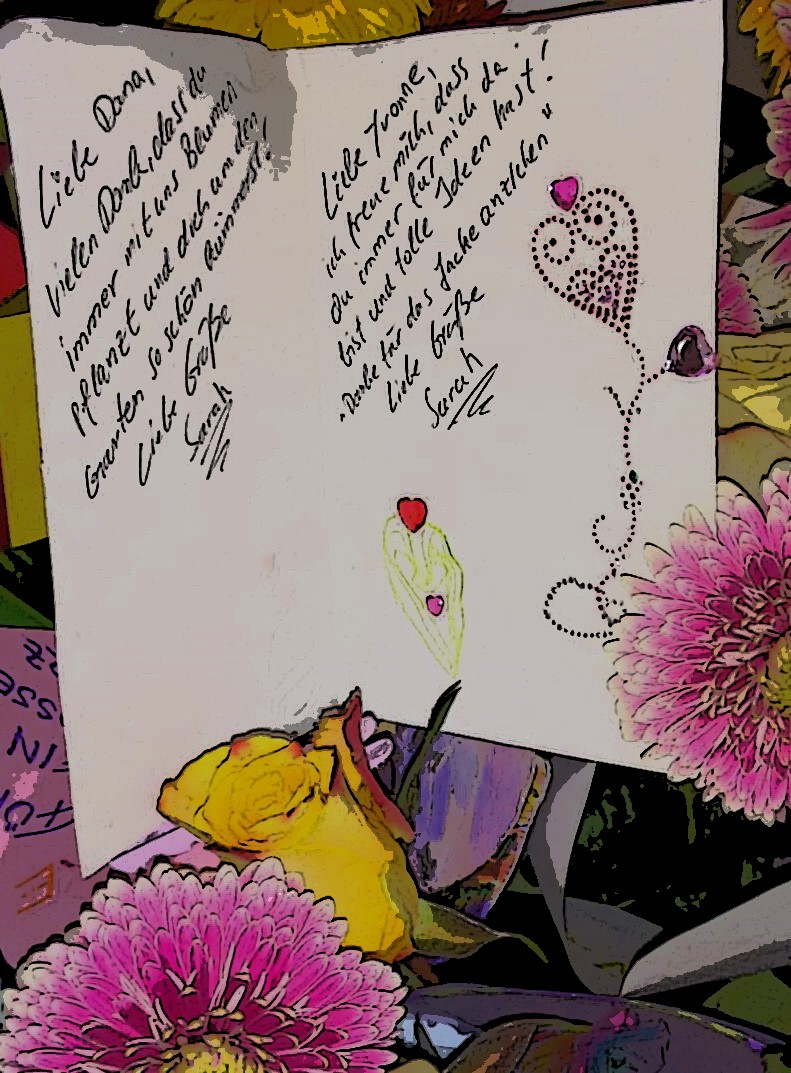 Liebe Dana,
vielen Dank, dass du
immer mit uns Blumen
pflanzt und dich um den
Garten so schön kümmerst!
Liebe Grüße
Sarah
Liebe Yvonne,
ich freue mich, dass
du immer für mich da
bist und tolle Ideen hast!
"Danke für das Jacke anziehen"
Liebe Grüße
Sarah
FÜR
EIN